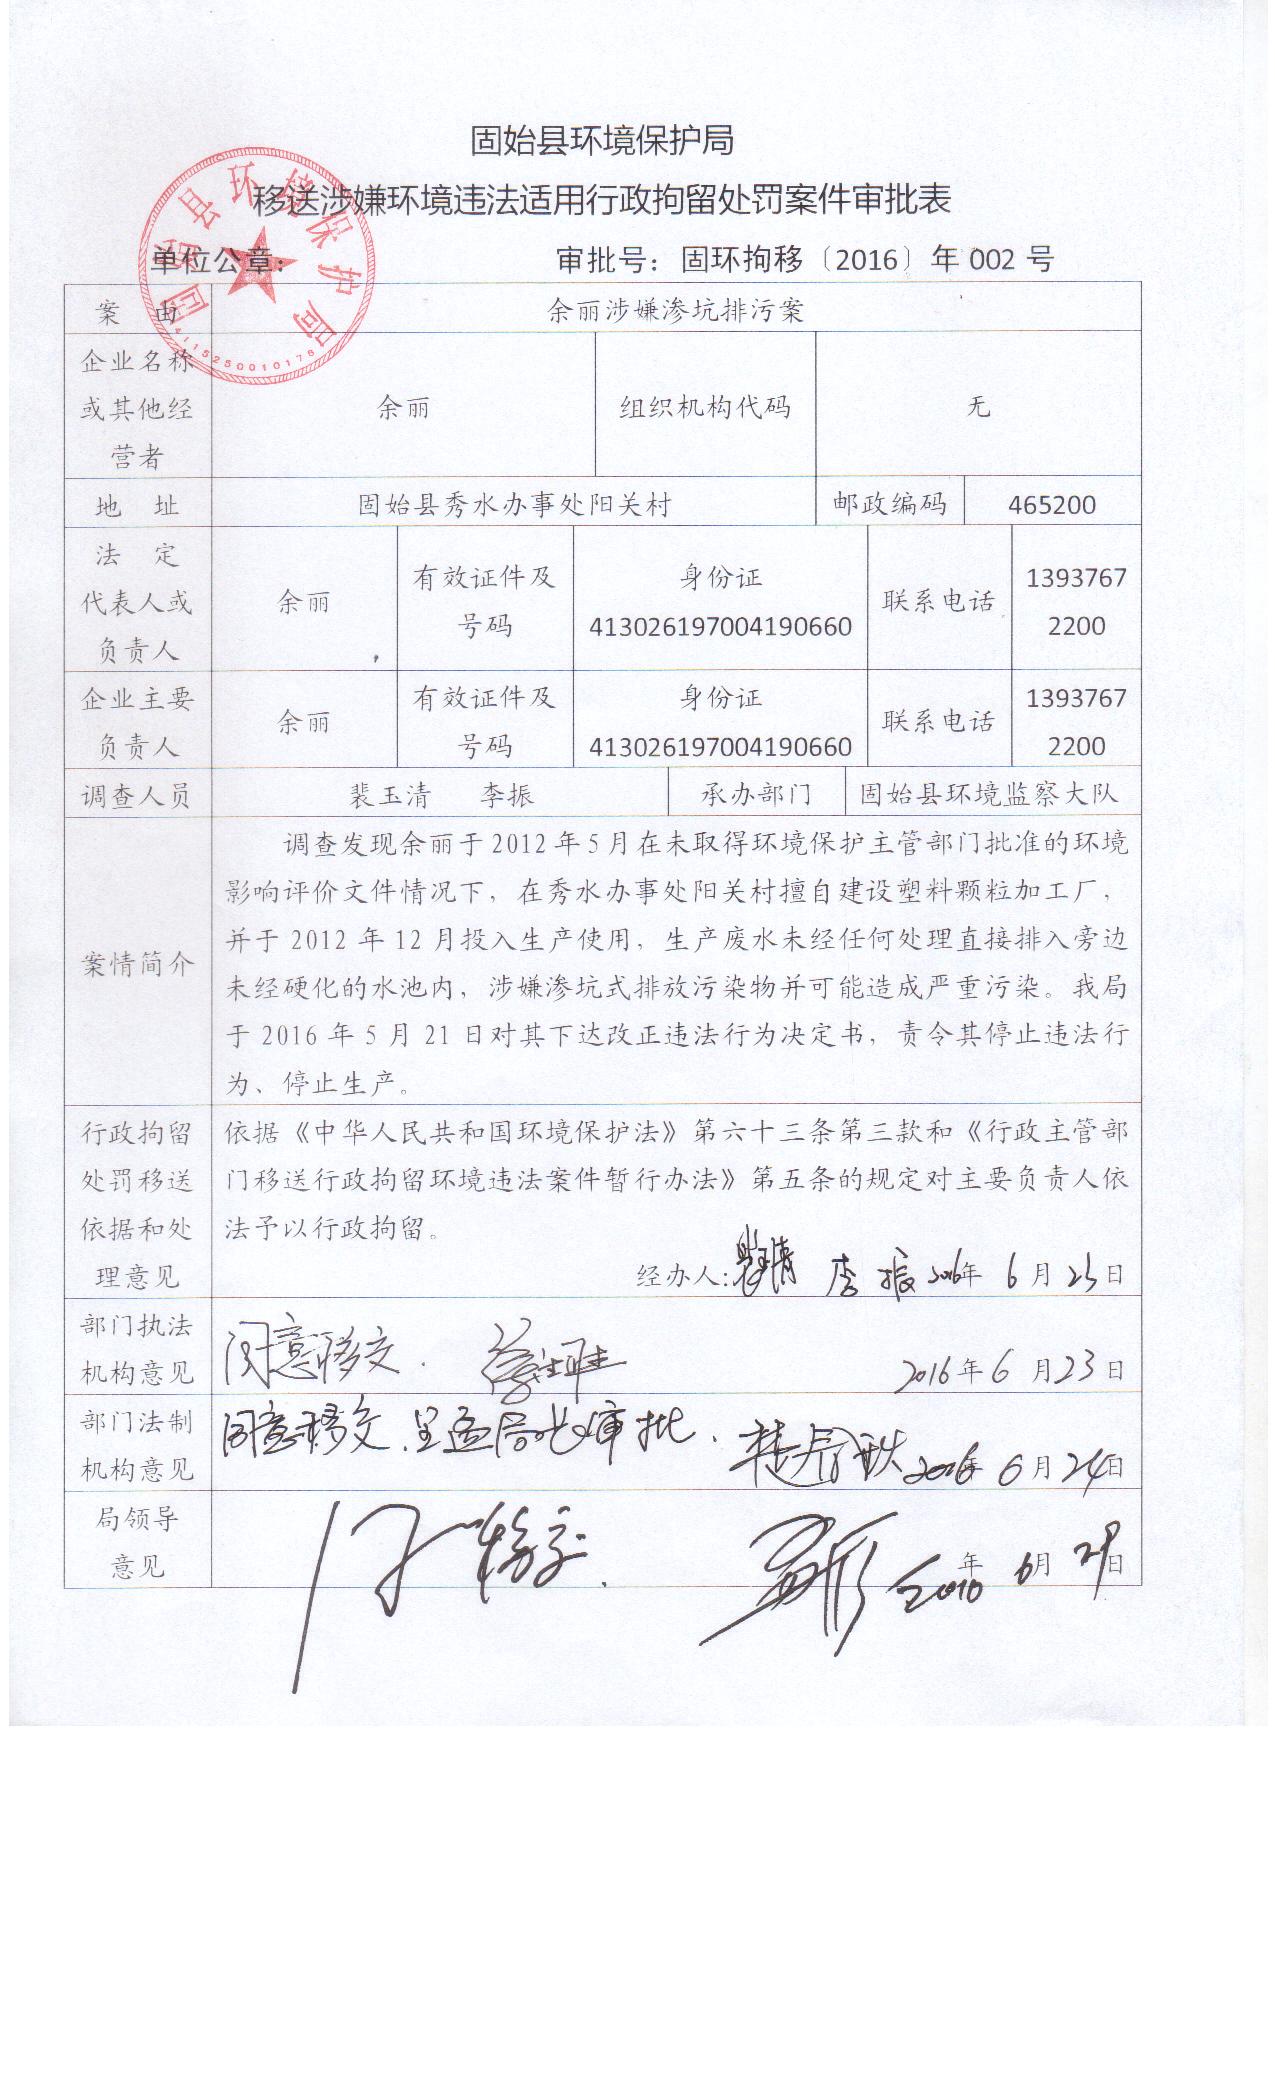 固始县环境保护局
移送涉嫌环境违法适用行政拘留处罚案件审批表
单位公章： 审批号：固环拘移〔2016〕年 002 号
固始县环境保护局
4115250010178
案 由 余丽涉嫌渗坑排污案
企业名称
或其他经
营者
余丽 组织机构代码 无
地 址 固始县秀水办事处阳关村 邮政编码 465200
法 定
代表人或
负责人
余丽
有效证件及
号码
身份证
413026197004190660
联系电话
1393767
2200
企业主要
负责人
余丽
有效证件及
号码
身份证
413026197004190660
联系电话
1393767
2200
调查人员 裴玉清 李振 承办部门 固始县环境监察大队
案情简介
调查发现余丽于 2012 年 5 月在未取得环境保护主管部门批准的环境
影响评价文件情况下，在秀水办事处阳关村擅自建设塑料颗粒加工厂，
并于 2012 年 12 月投入生产使用，生产废水未经任何处理直接排入旁边
未经硬化的水池内，涉嫌渗坑式排放污染物并可能造成严重污染。我局
于 2016 年 5 月 21 日对其下达改正违法行为决定书，责令其停止违法行
为、停止生产。
行政拘留
处罚移送
依据和处
理意见
依据《中华人民共和国环境保护法》第六十三条第三款和《行政主管部
门移送行政拘留环境违法案件暂行办法》第五条的规定对主要负责人依
法予以行政拘留。
经办人：裴玉清 李振 2016年 6 月 23 日
部门执法
机构意见
同意移交. 2016年 6 月 23 日
部门法制
机构意见
同意移交.呈孟局长审批. 2016年 6 月 24日
局领导
意见
年 6月 29日